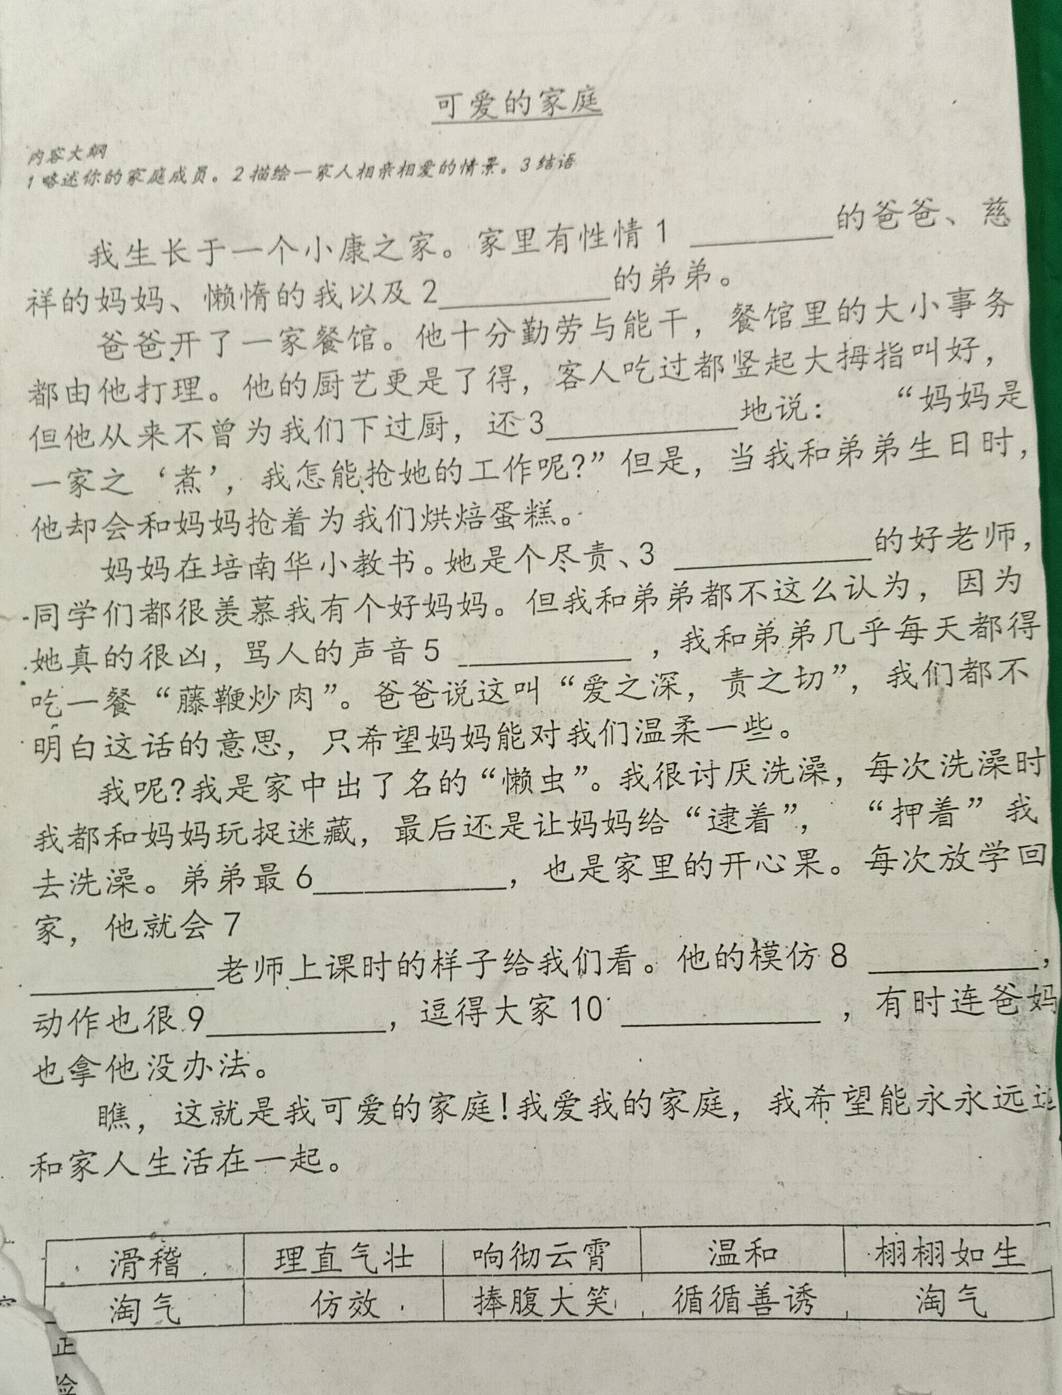 可爱的家庭
内容大纲
1 略述你的家庭成员。2 描绘一家人相亲相爱的情景。3 结语
我生长于一个小康之家。家里有性情 1 ________的爸爸、慈
祥的妈妈、懒惰的我以及 2________的弟弟。
爸爸开了一家餐馆。他十分勤劳与能干，餐馆里的大小事务
都由他打理。他的厨艺更是了得，客人吃过都竖起大拇指叫好，
但他从来不曾为我们下过厨，还 3________地说： “妈妈是
一家之‘煮’，我怎能抢她的工作呢?”但是，当我和弟弟生日时，
他却会和妈妈抢着为我们烘焙蛋糕。
妈妈在培南华小教书。她是个尽责、3 ________的好老师，
同学们都很羡慕我有个好妈妈。但我和弟弟都不这么认为，因为
她真的很凶，骂人的声音 5 ________，我和弟弟几乎每天都得
吃一餐“藤鞭炒肉”。爸爸说这叫“爱之深，责之切”，我们都不
明白这话的意思，只希望妈妈能对我们温柔一些。
我呢?我是家中出了名的“懒虫”。我很讨厌洗澡，每次洗澡时
我都和妈妈玩捉迷藏，最后还是让妈妈给“逮着”， “押着”我
去洗澡。弟弟最 6________，也是家里的开心果。每次放学回
家，他就会 7
________老师上课时的样子给我们看。他的模仿 8 ________，
动作也很 9________，逗得大家 10 ________，有时连爸妈
也拿他没办法。
瞧，这就是我可爱的家庭!我爱我的家庭，我希望能永永远远
和家人生活在一起。
滑稽 理直气壮 响彻云霄 温和 栩栩如生
淘气 仿效 捧腹大笑 循循善诱 淘气
正